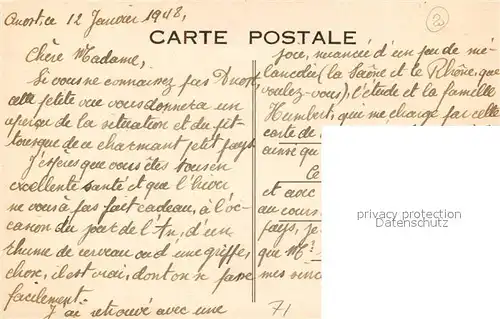 Anost, ce 12 Janvier 1948,
CARTE POSTALE
Chère Madame,
Si vous ne connaissez pas Anost,
cette petite vue vous donnera un
aperçu de la situation et du pit-
toresque de ce charmant petit pays.
J'espère que vous êtes tous en
excellente santé et que l'hiver
ne vous a pas fait cadeau, à l'oc-
casion du jour de l'An, d'un
rhume de cerveau ou d'une griffe,
chose, il est vrai, dont on se passe
facilement.
J'ai retrouvé avec une
joie, nuancée d'un peu de mé-
lancolie (la Saône et le Rhône, que
voulez-vous), l'étude et la famille
Humbert, que me charge par cette
carte de
ainsi qu
Ce
et avec
au cours
pays, je
que Mr
mes sinc
71
2
privacy protection
Datenschutz